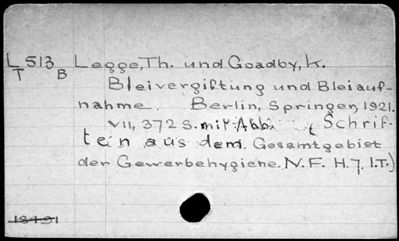 L 513 Legge, Th. und Goadby, K.
T B
Bleivergiftung und Bleiauf-
nahme. Berlin, Springer, 1921.
VII, 372 S. mit Abb. Schrif-
ten aus dem Gesamtgebiet
der Gewerbehygiene. N. F. H. 7, I.T.)
18491